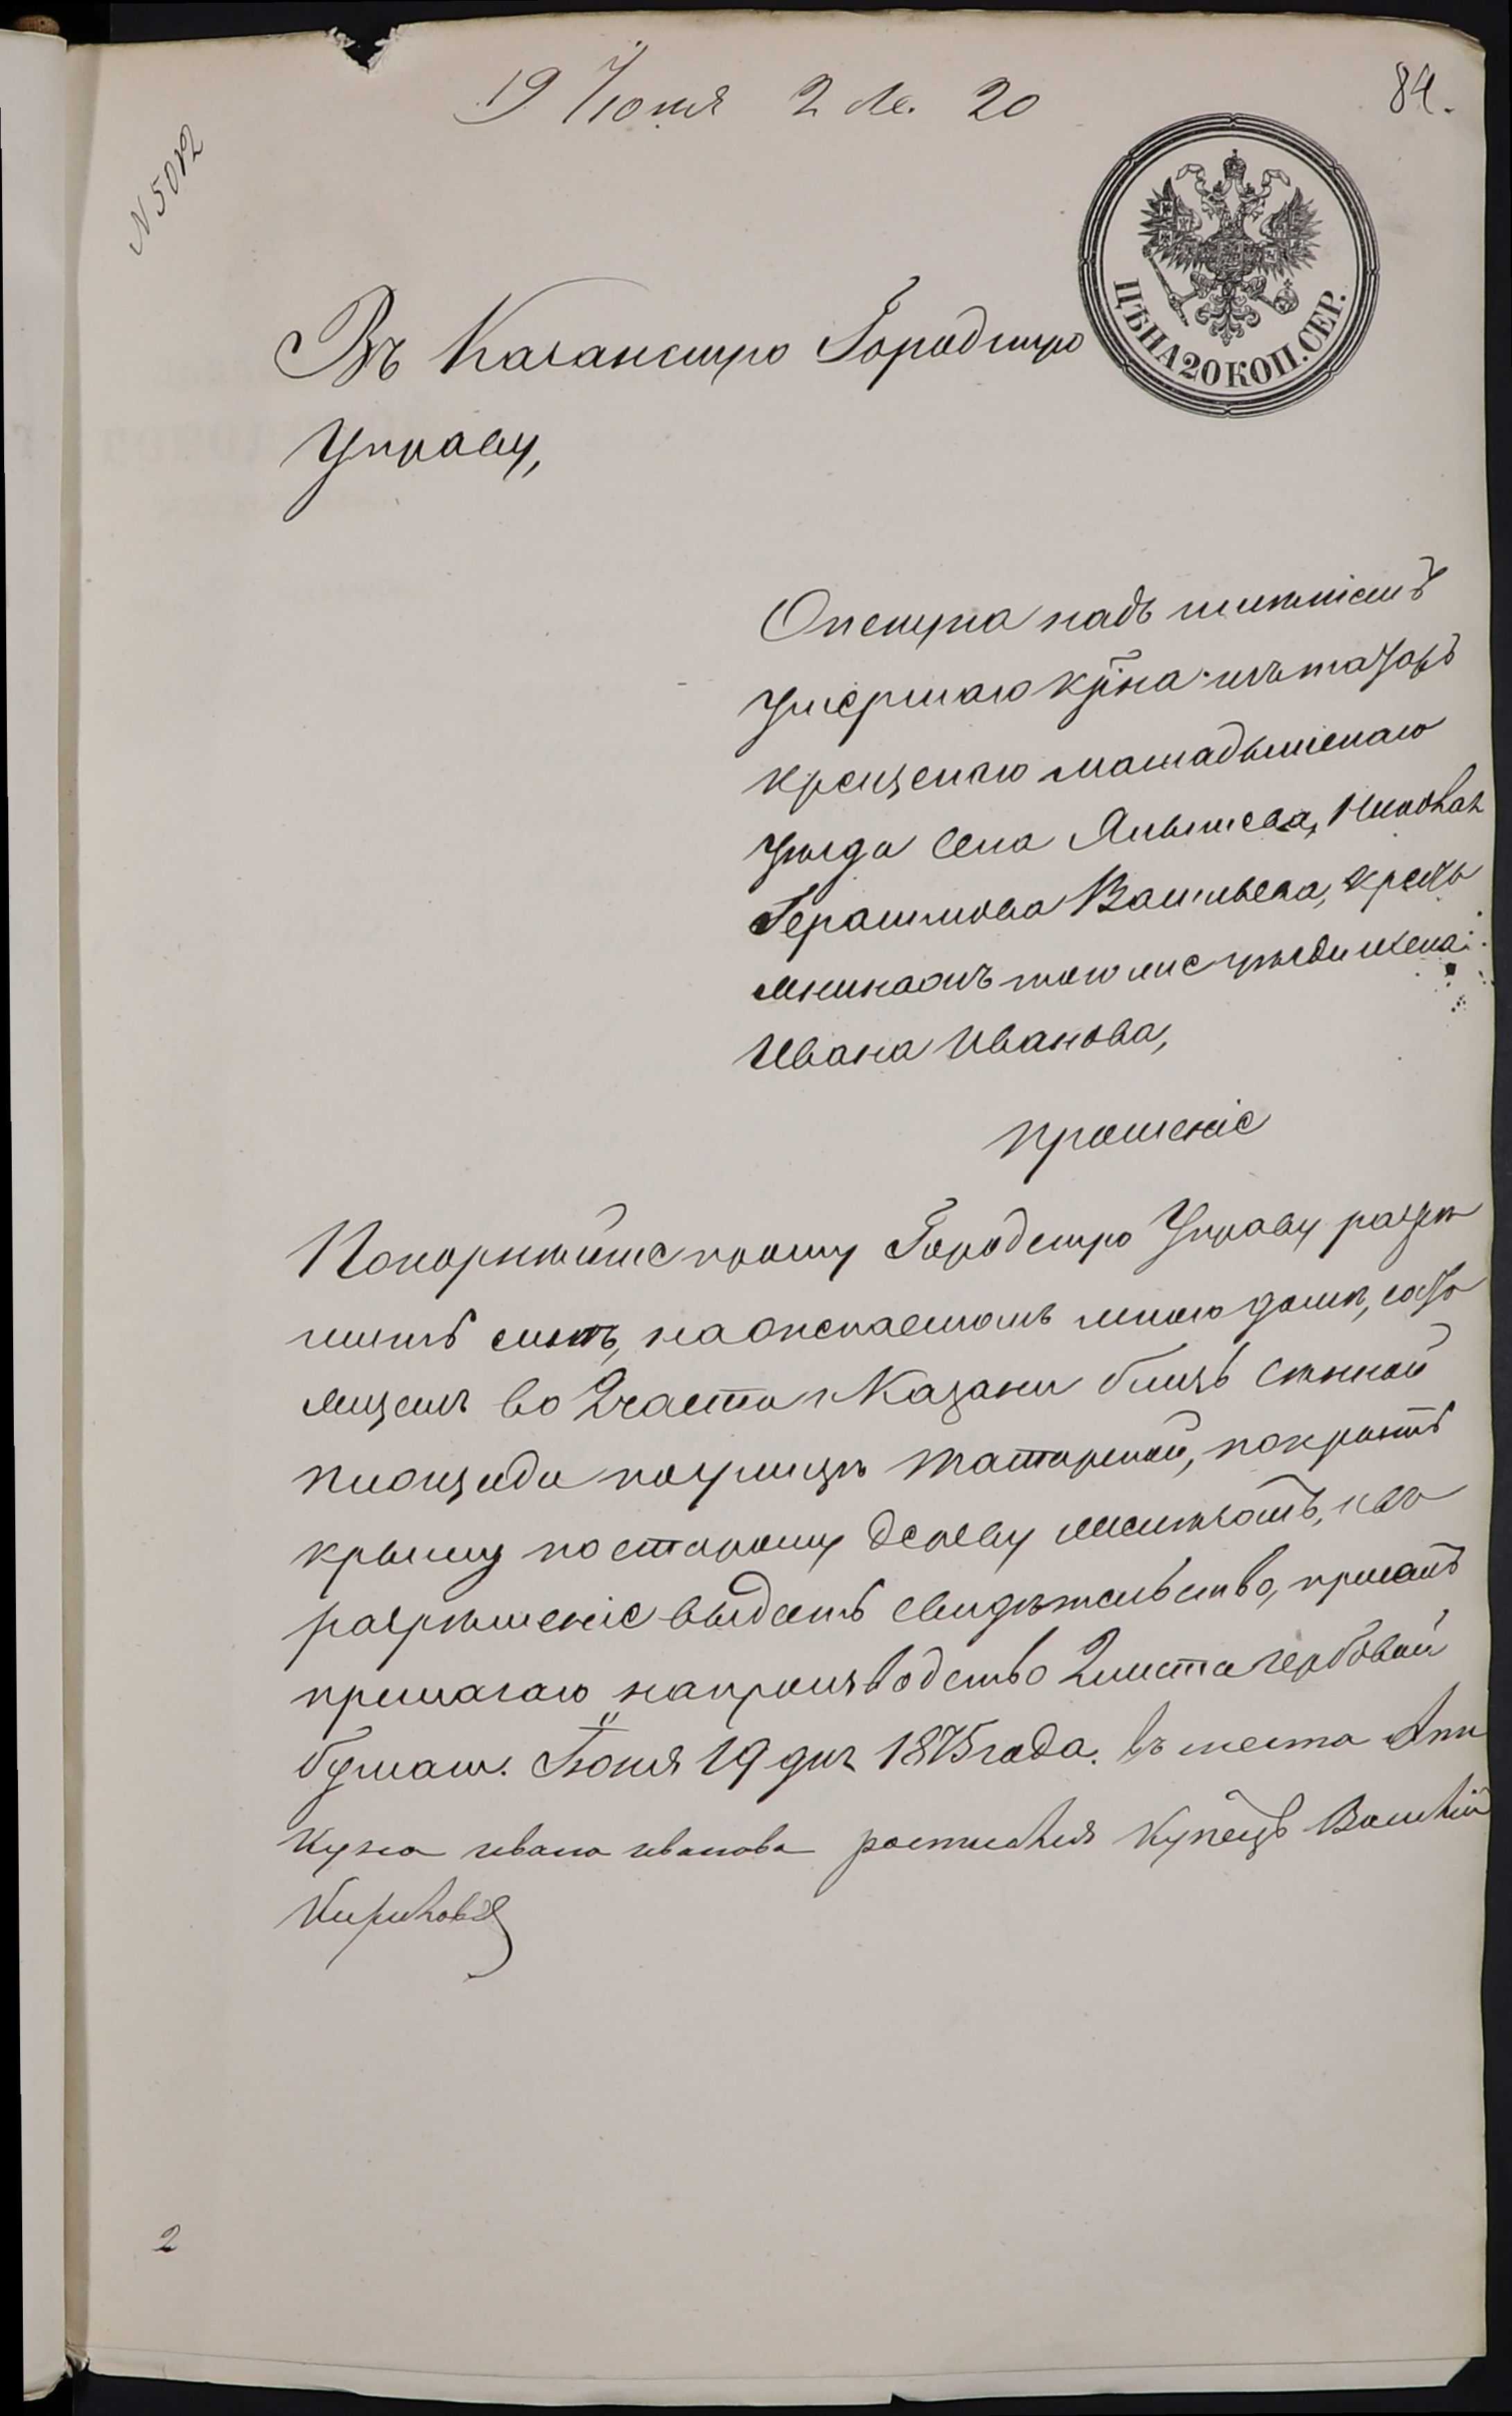 19 Іюня 2 л. 20
84.
N 5012
ЦѢНА 20 КОП. СЕР.
Въ Казанскую Городскую
Управу,
Опекуна надъ имѣніемъ
умершаго к̃на изъ татаръ
крещенаго мамадышскаго
уѣзда села Янышева,
Герасимова Васильева, кресть
янина того же уѣзда
Ивана Иванова,
прошеніе
Покорнѣйше прошу Городскую Управу разрѣ
шить мнѣ, на опекаемомъ мною домѣ, состо
ящемъ во 2 части г Казани близь Сѣнной
площади по улицѣ Татарской, покрыть
крышу по старому дереву желѣзомъ, и во
разрѣшеніе выдать свидѣтельство, при семъ
прилагаю на производство 2 листа гербовой
бумаги. Іюня 19 дня 1875 года. въ места Апи
куна ивана иванова росписался Купецъ Василій
Кириловъ
2